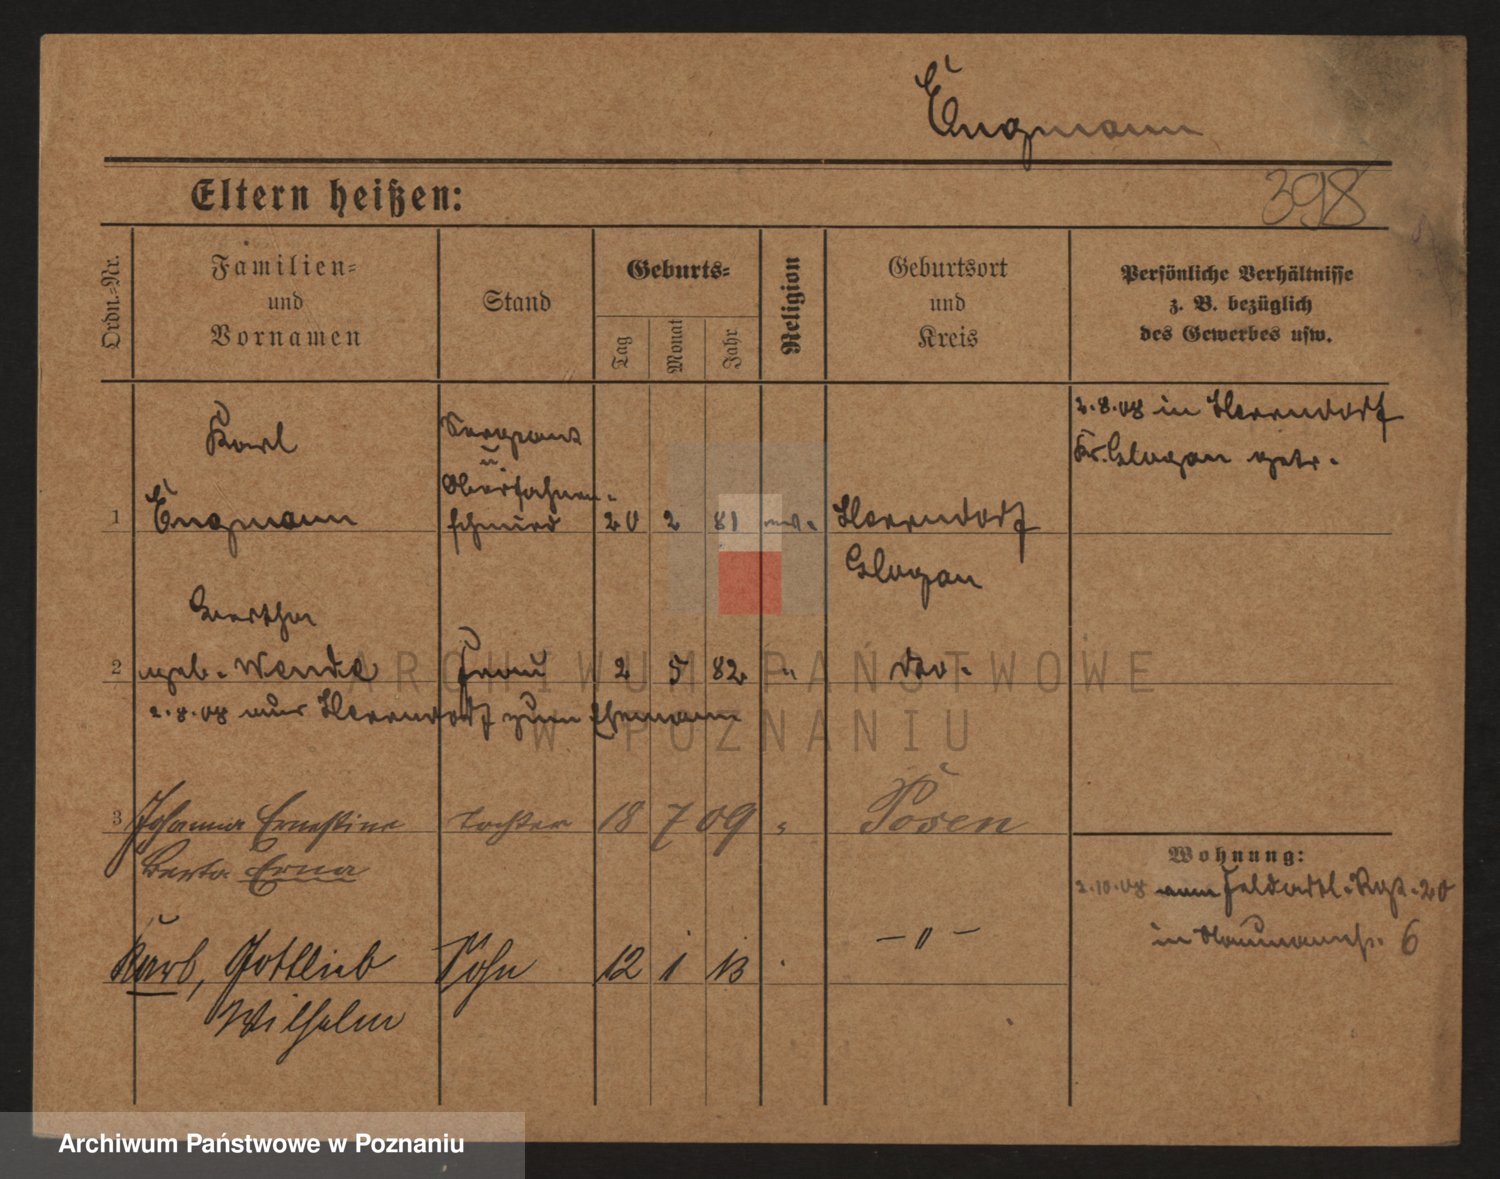 Engmann
Eltern heißen:
398
Ordn.-Nr.
Familien-
und
Vornamen
Stand
Geburts-
Tag
Monat
Jahr
Religion
Geburtsort
und
Kreis
Persönliche Verhältnisse
z. B. bezüglich
des Gewerbes usw.
Karl
Sergeant
u
Oberfahnen-
1 Engmann schmied 20 2 81 ev. Herrndorf
Glogau
2.8.08 in Herrndorf
Kr. Glogau getr.
Bertha
2 geb. Wende Frau 2 5 82 " dto.
2.8.08 aus Herrndorf zum Ehemann
3 Johanna Ernestine Tochter 18 7 09 " Posen
Berta Erna
Karl, Gottlieb Sohn 12 1 13 — " —
Wilhelm
Wohnung:
2.10.08 vom Feldartl. Rgt. 20
in Naumannstr. 6
ARCHIWUM PAŃSTWOWE
W POZNANIU
Archiwum Państwowe w Poznaniu